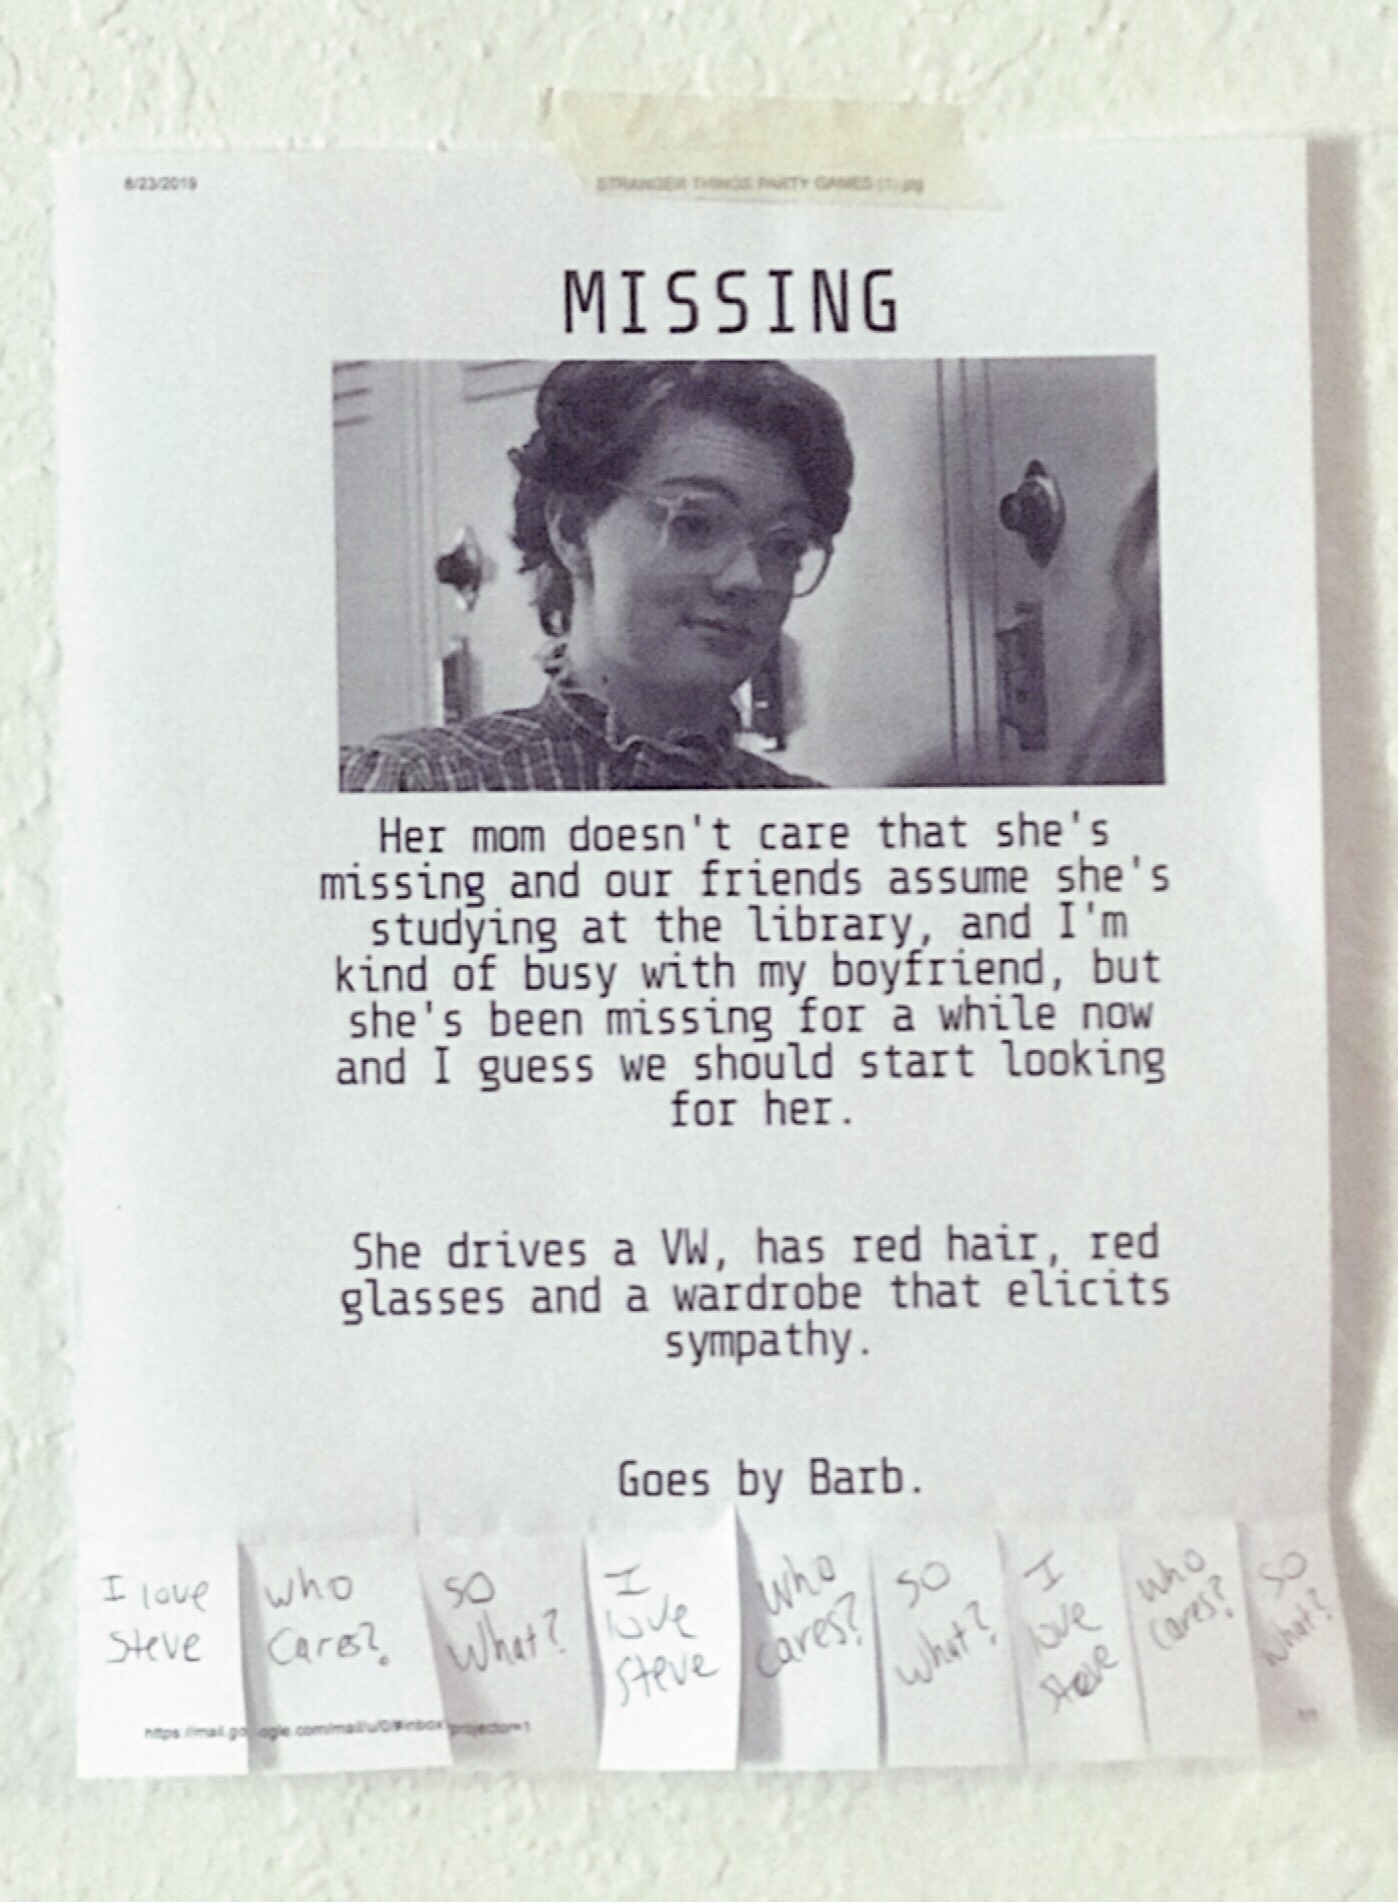 8/23/2019
STRANGER THINGS PARTY GAMES (1).jpg
MISSING
Her mom doesn't care that she's
missing and our friends assume she's
studying at the library, and I'm
kind of busy with my boyfriend, but
she's been missing for a while now
and I guess we should start looking
for her.
She drives a VW, has red hair, red
glasses and a wardrobe that elicits
sympathy.
Goes by Barb.
I love
Steve
Who
Cares?
SO
What?
I
love
Steve
Who
cares?
SO
what?
I
love
Steve
Who
cares?
SO
what?
https://mail.google.com/mail/u/0/#inbox?projector=1
1/1